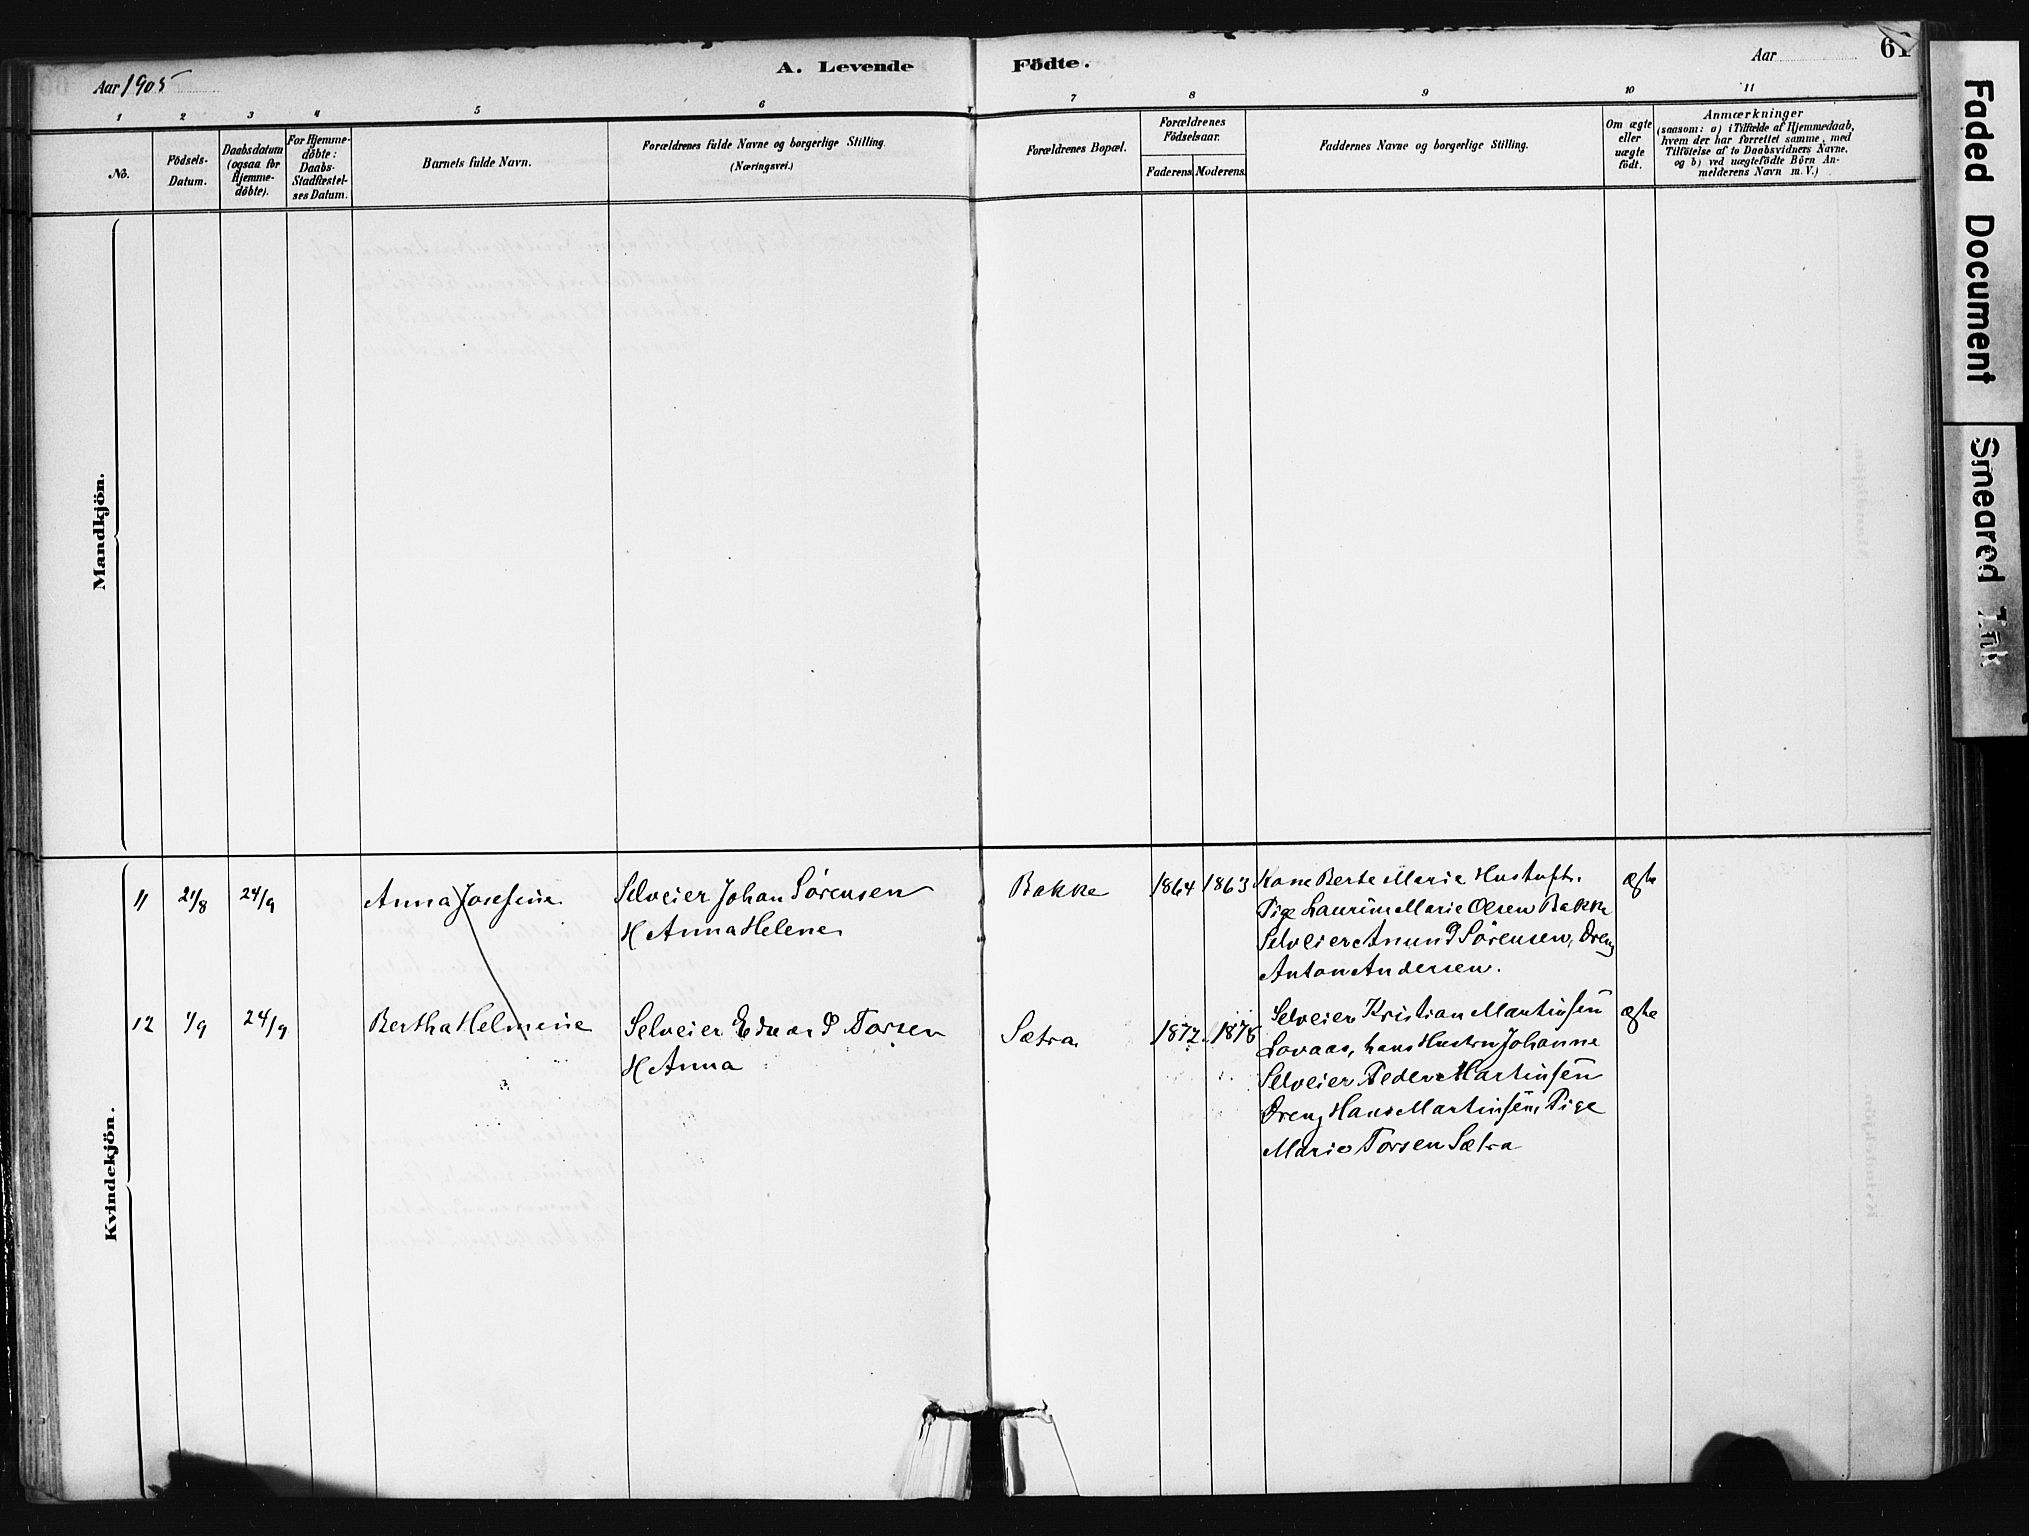 Aar 1905
A. Levende
Födte.
Aar
61
1 2 3 4 5 6 7 8 9 10 11
No.
Födsels-
Datum.
Daabsdatum
(ogsaa for
Hjemme-
döbte).
For Hjemme-
döbte:
Daabs-
Stadfæstel-
ses Datum.
Barnets fulde Navn.
Forældrenes fulde Navne og borgerlige Stilling.
(Næringsvei.)
Forældrenes Bopæl.
Forældrenes
Födselsaar.
Faderens. Moderens.
Faddernes Navne og borgerlige Stilling.
Om ægte
eller
uægte
födt.
Anmærkninger
(saasom: a) i Tilfælde af Hjemmedaab,
hvem der har forrettet samme, med
Tilföielse af to Daabsvidners Navne,
og b) ved uægtefödte Börn An-
melderens Navn m. V.)
Mandkjön.
Kvindekjön.
11 21/8 24/9 Anna Josefine Selveier Johan Sörensen Bakke 1864 1863 Kone Berte Marie Hustoft. ægte
H Anna Helene Pige Laurine Marie Olsen Bakke
Selveier Anund Sörensen, Dreng
Anton Andersen.
12 1/9 24/9 Bertha Helmine Selveier Edvard Torsen Sætra 1872. 1878 Selveier Kristian Martinsen ægte
H Anna Lovaas, hans Hustru Johanne
Selveier Peder Martinsen
Dreng Hans Martinsen, Pige
Marie Torsen Sætra
Faded Document
Smeared Ink